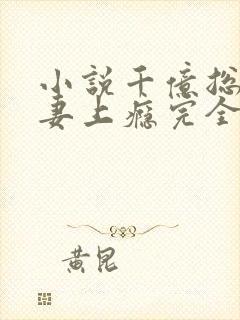 小說千億總
妻上癮完全
黃昆